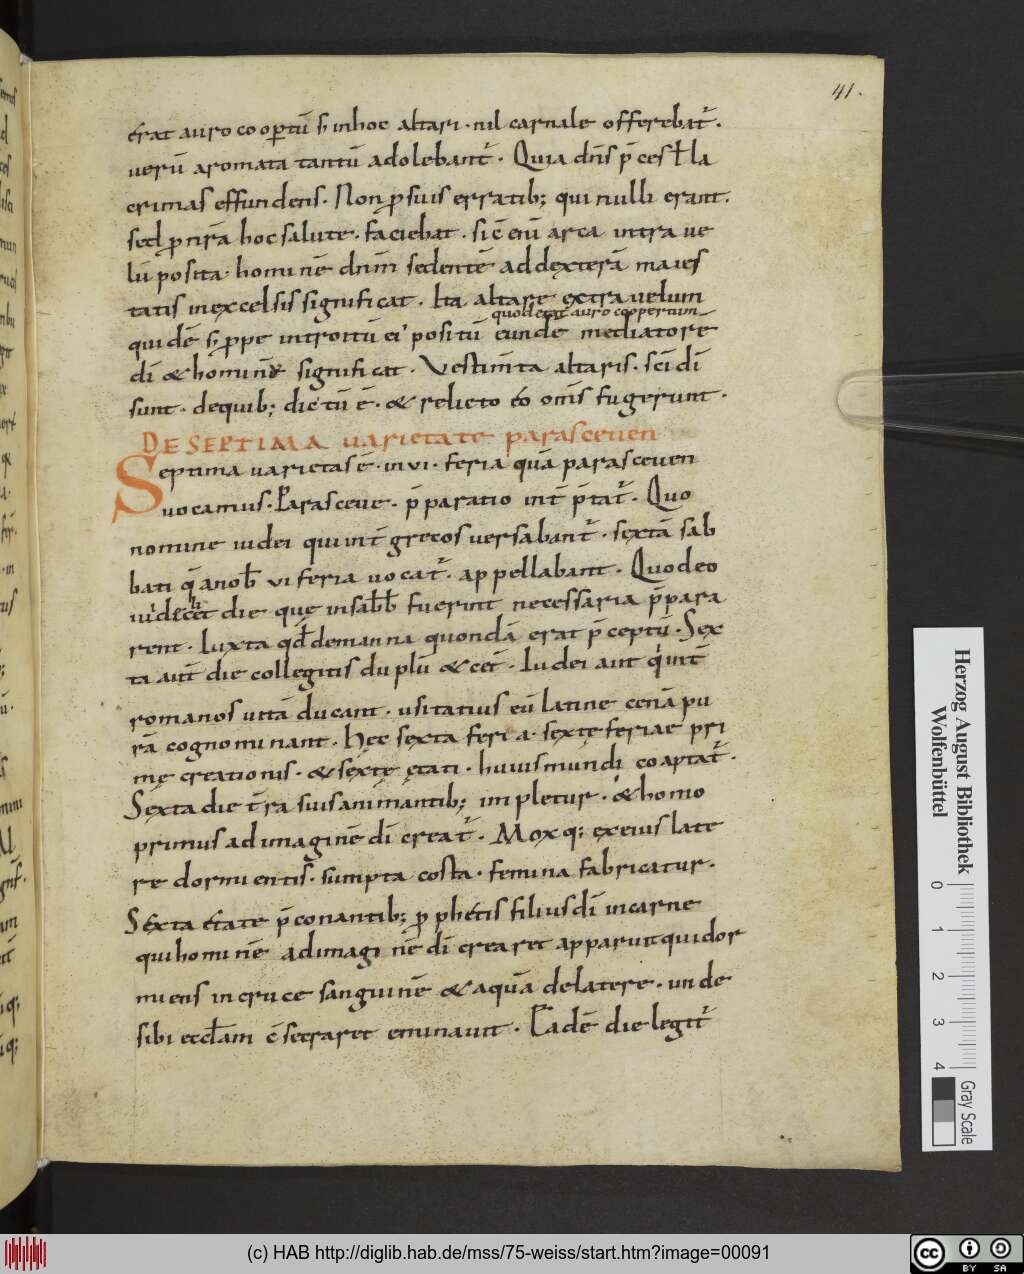 41.
erat auro coop̲tū s; inhoc altari · nil carnale offerebat᷑.
uerū aromata tantū adolebant᷑. Quia dn̄s p̄ces & la
crimas effundens. Non ꝓ suis erratib; qui nulli erant.
sed ꝓ nr̄a hoc salute. faciebat. sic̄ enī arca intra ue
lū posita. hominē dn̄m sedentē addexterā maies
tatis inexcelsis significat. Ita altare extra uelum
quod erat auro coopertum
quidē s; ꝓpe introitū ei᾽ positū eundē mediatorē
dī & hominū significat. Vestim̄ta altaris. sc̄i dī
sunt. dequib; dictū ē. & relicto eo om̄s fugerunt.
DE SEPTIMA uarietate parasceuen
Septima uarietas ē. in vi. feria quā parasceuen
uocamus. Parasceue. p̄paratio int̄ p̄tat᷑. Quo
nomine iudei qui int̄ grecos uersabant᷑. sextā sab
bati q̄ a nob̄ vi feria uocat᷑. appellabant. Quod eo
uidelicet die quę in sabb̄ fuerint necessaria p̄para
rent. Iuxta qd̄ demanna quondā erat p̄ceptū. Sex
ta aut̄ die collegitis duplū & cet̄. Iudei aut̄ q int̄
romanos uitā ducant. usitatius eū latine cenā pu
rā cognominant. Hęc sexta feria. sextę feriae pri
mę creationis. & sextę ętati. huius mundi coaptat᷑.
Sexta die t̄ra suis animantib; impletur. & homo
primus ad imaginē dī creat᷑. Moxq; ex eius late
re dormientis. sumpta costa. femina fabricatur.
Sexta etate p̄conantib; ꝓphetis filius dī incarne
qui hominē ad imaginē dī crearet apparuit qui dor
miens in cruce sanguinē & aquā de latere. unde
sibi eccl̄am c̄secraret emanauit. Eadē die legit᷑
Herzog August Bibliothek
Wolfenbüttel
0 1 2 3 4
Gray Scale
(c) HAB http://diglib.hab.de/mss/75-weiss/start.htm?image=00091
cc BY SA